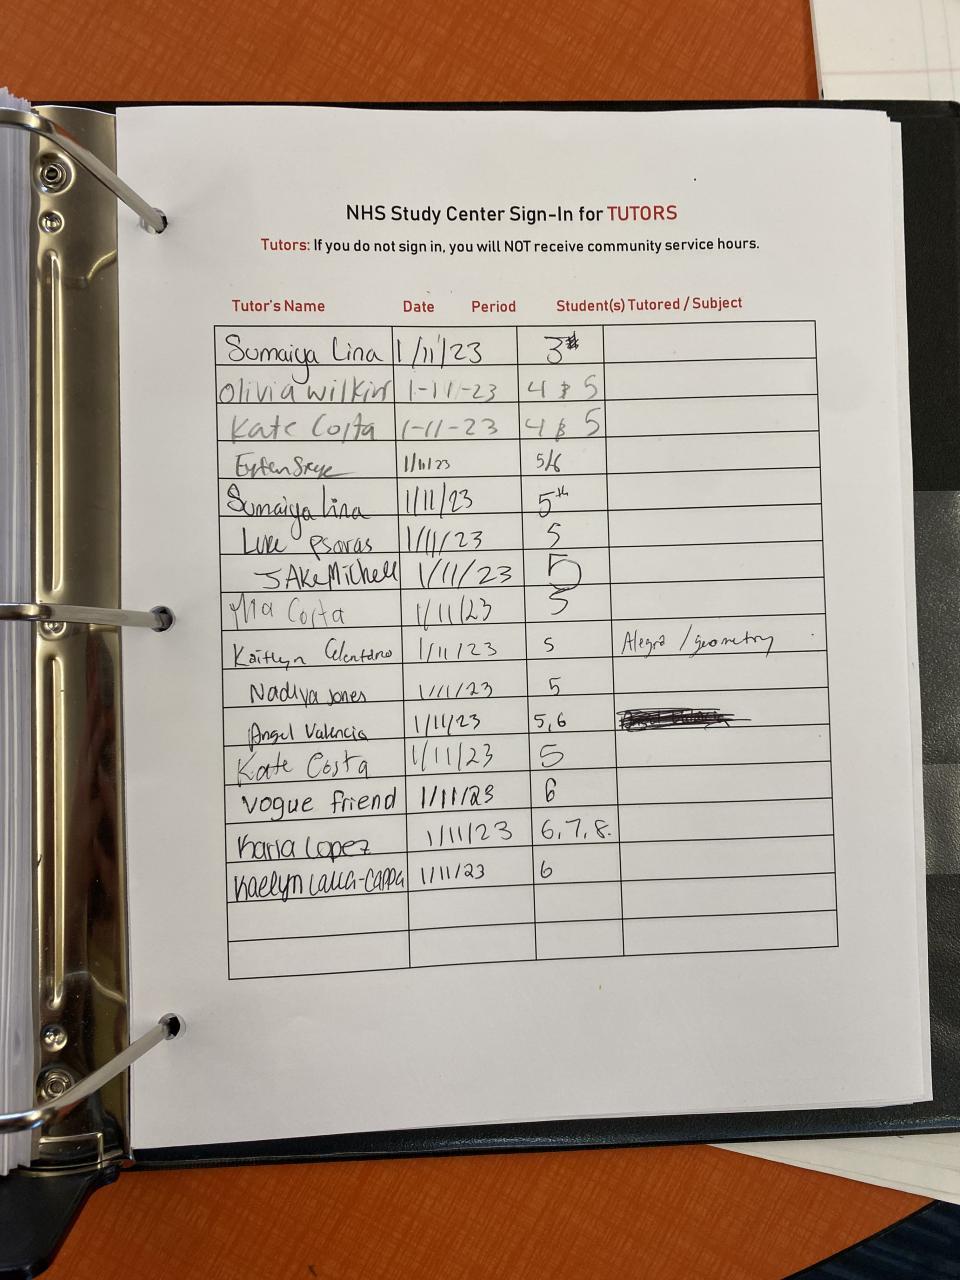 NHS Study Center Sign-In for TUTORS
Tutors: If you do not sign in, you will NOT receive community service hours.
Tutor's Name Date Period Student(s) Tutored / Subject
Sumaiya Lina 1/11/23 3
Olivia Wilkins 1-11-23 4 & 5
Kate Costa 1-11-23 4 & 5
1/11/23 5/6
Sumaiya Lina 1/11/23 5th
Luke Psaras 1/11/23 5
JAke Michell 1/11/23 5
Mia Costa 1/11/23 5
Kaitlyn Celentano 1/11/23 5 Alegra / geometry
Nadiya Jones 1/11/23 5
Angel Valencia 1/11/23 5,6
Kate Costa 1/11/23 5
Vogue friend 1/11/23 6
Karla Lopez 1/11/23 6,7,8.
Kaelyn 1/11/23 6